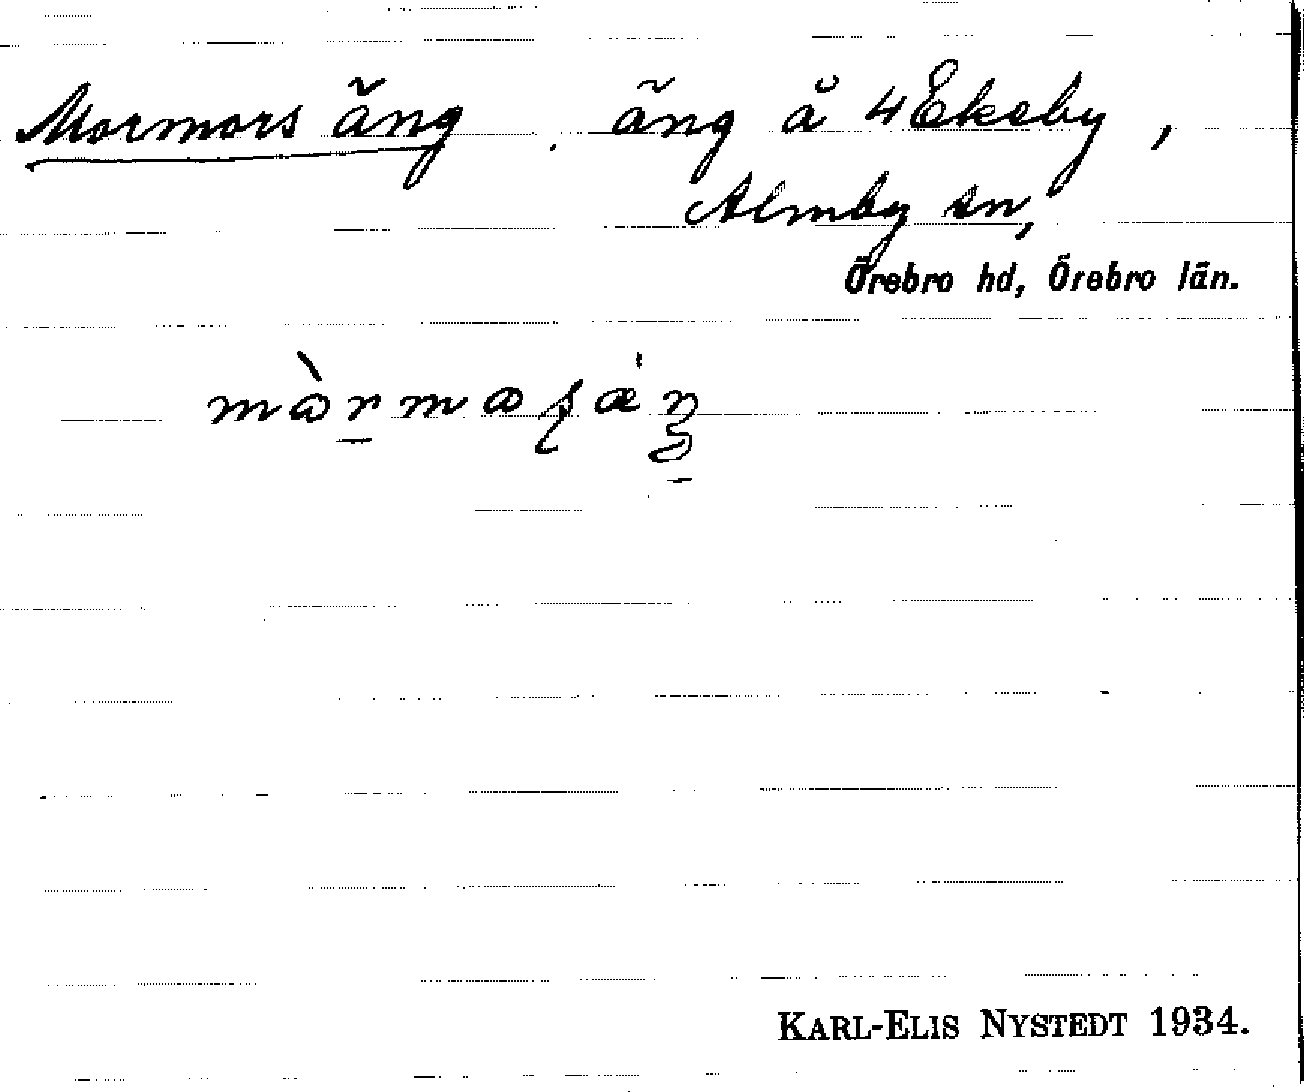 Mormors äng. äng å 4 Ekeby,
Almby sn,
Örebro hd, Örebro län.
KARL-ELIS NYSTEDT 1934.